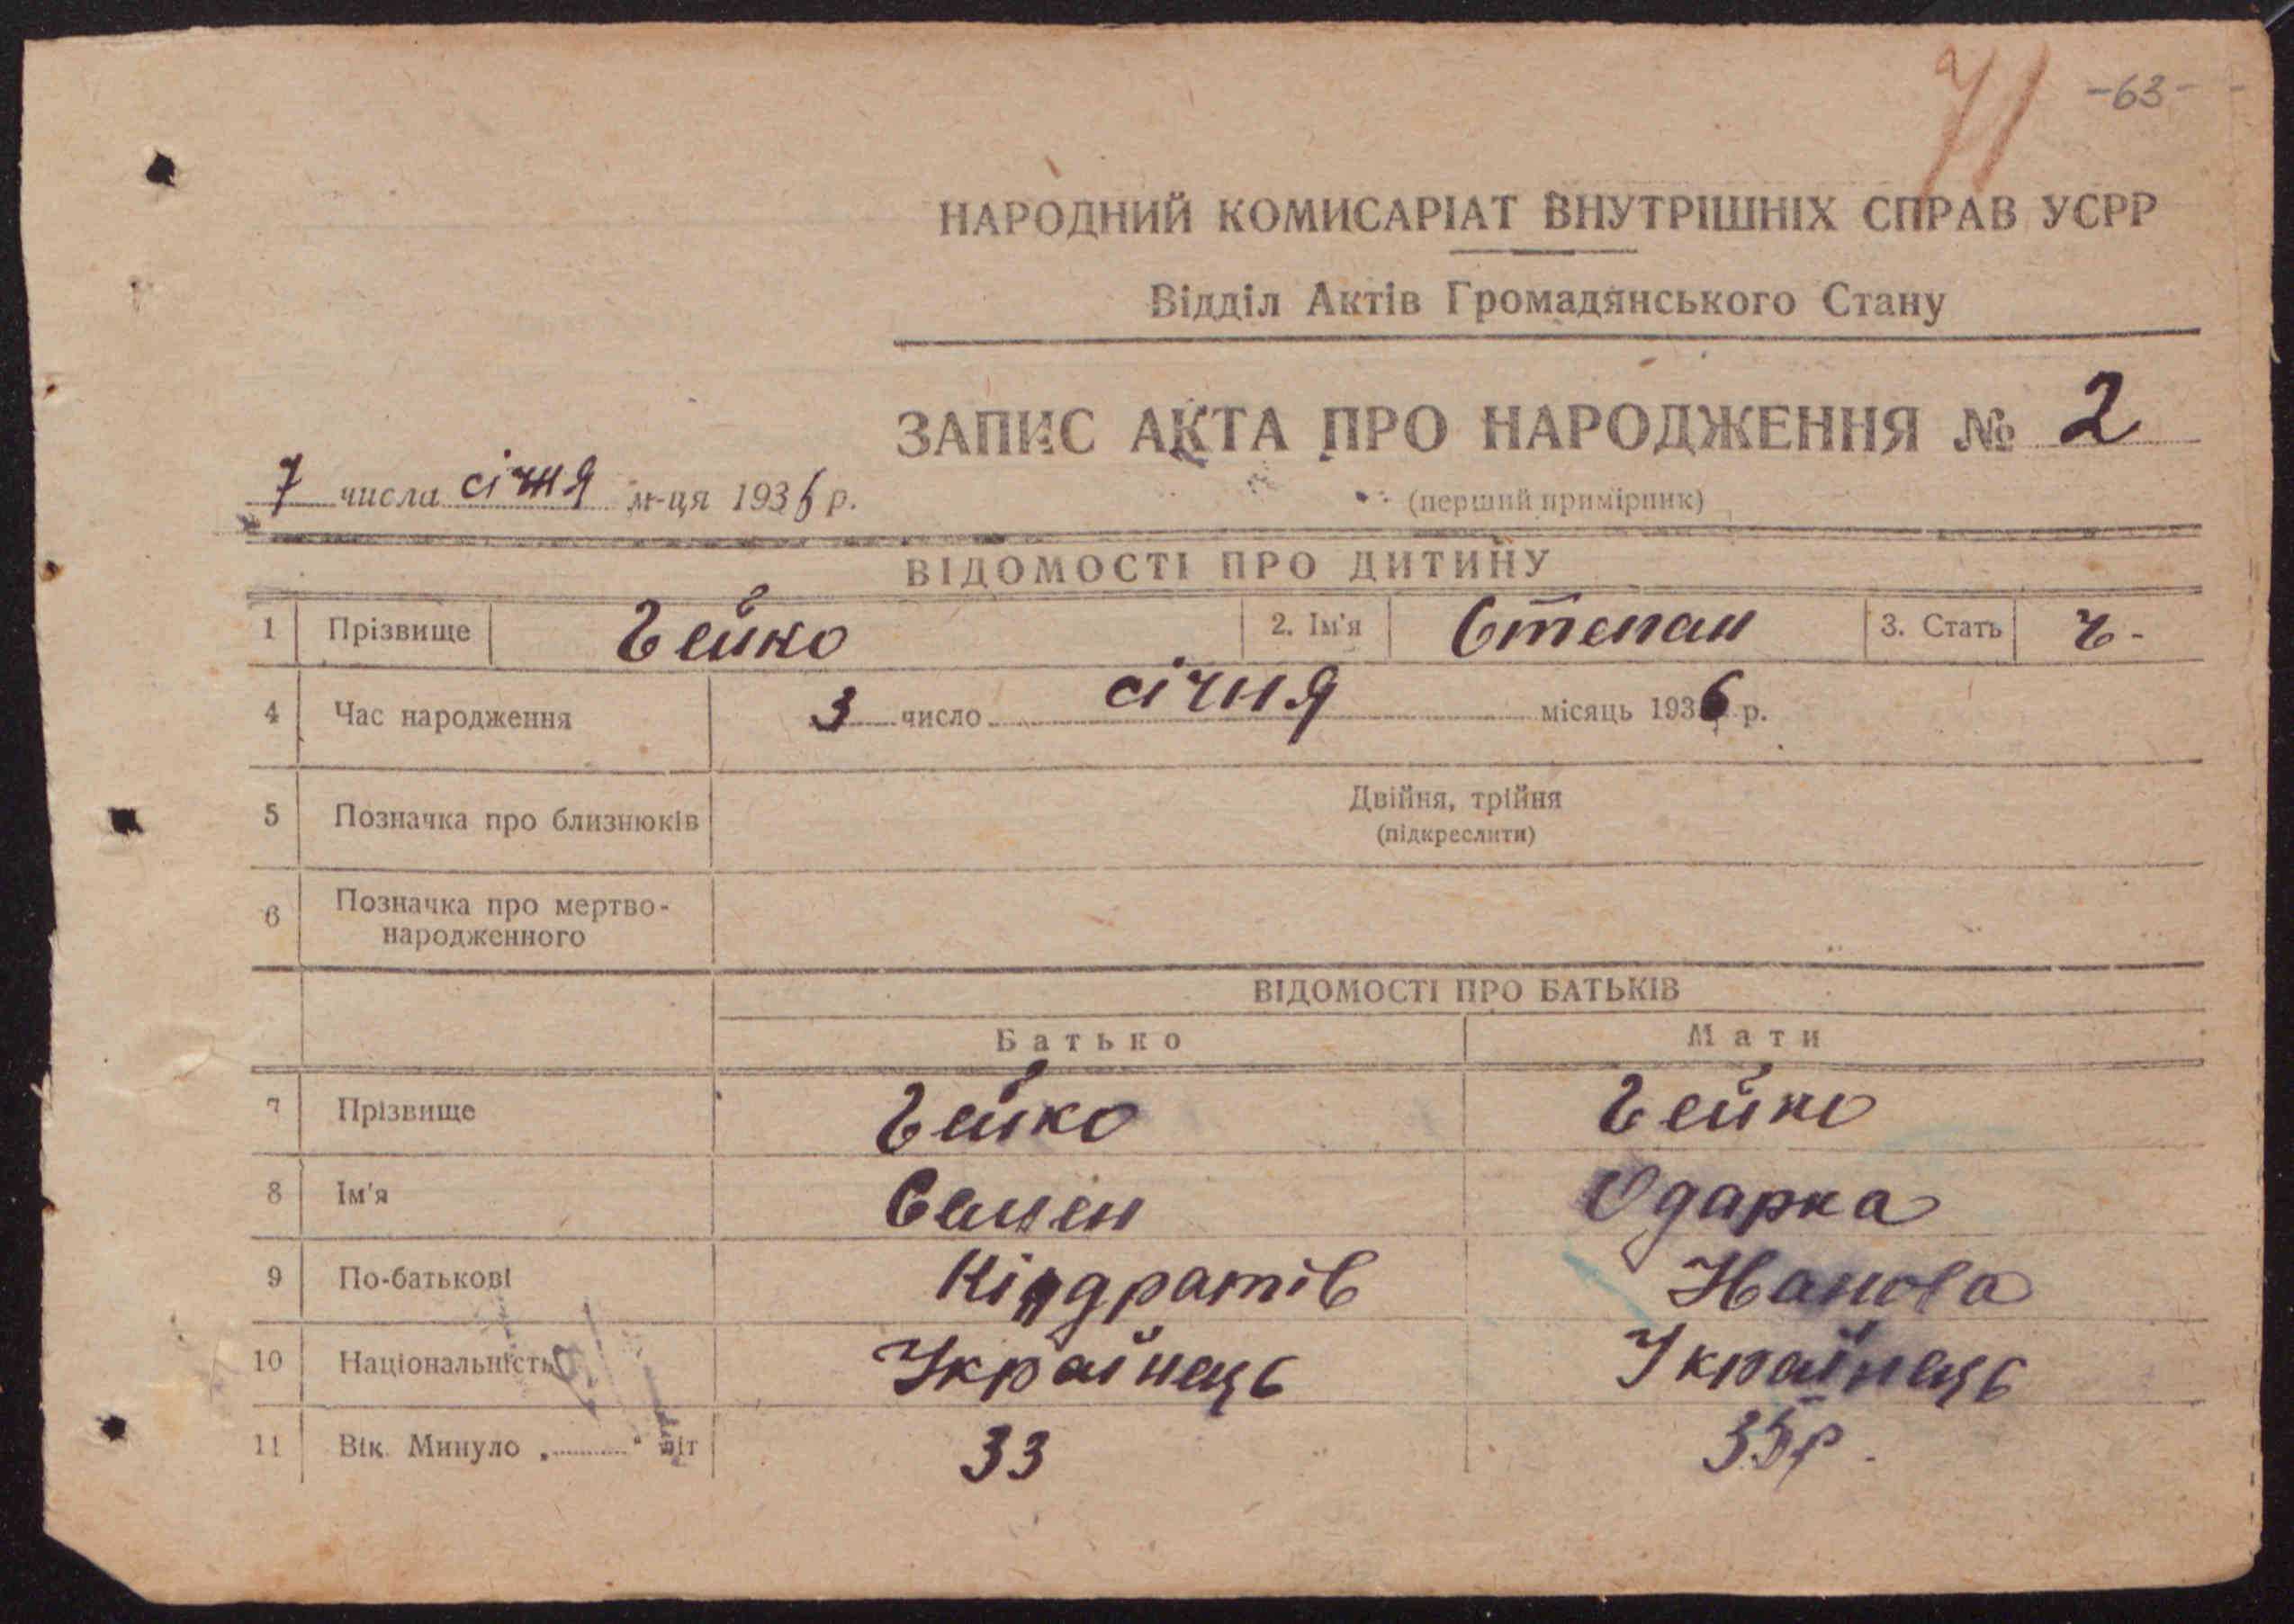 71 -63-
НАРОДНИЙ КОМИСАРІАТ ВНУТРІШНІХ СПРАВ УСРР
Відділ Актів Громадянського Стану
ЗАПИС АКТА ПРО НАРОДЖЕННЯ № 2
7 числа січня м-ця 1936 р. (перший примірник)
ВІДОМОСТІ ПРО ДИТИНУ
1 Прізвище Гейко 2. Ім'я Степан 3. Стать ч.-
4 Час народження 3 число січня місяць 1936 р.
5 Позначка про близнюків Двійня, трійня
(підкреслити)
6 Позначка про мертво-
народженного
ВІДОМОСТІ ПРО БАТЬКІВ
Батько Мати
7 Прізвище Гейко Гейко
8 Ім'я Семен Одарка
9 По-батькові Кіндратів
10 Національність Українець Українець
11 Вік. Минуло „ “ літ 33 33 р.